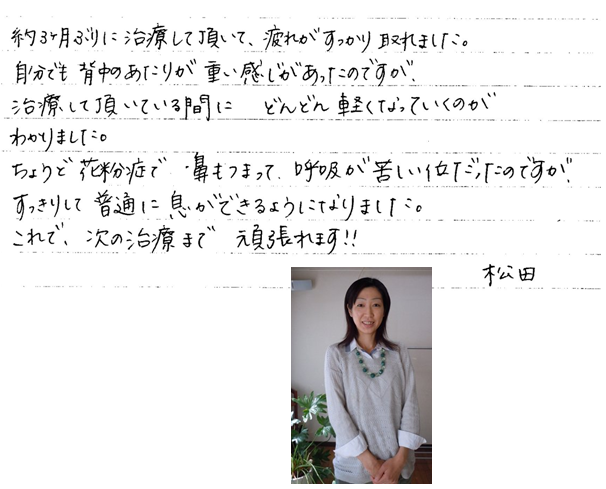 約3ヶ月ぶりに治療して頂いて、疲れがすっかり取れました。
自分でも背中のあたりが重い感じがあったのですが、
治療して頂いている間に どんどん軽くなっていくのが
わかりました。
ちょうど花粉症で鼻もつまって、呼吸が苦しい位だったのですが、
すっきりして普通に息ができるようになりました。
これで、次の治療まで 頑張れます!!
松田